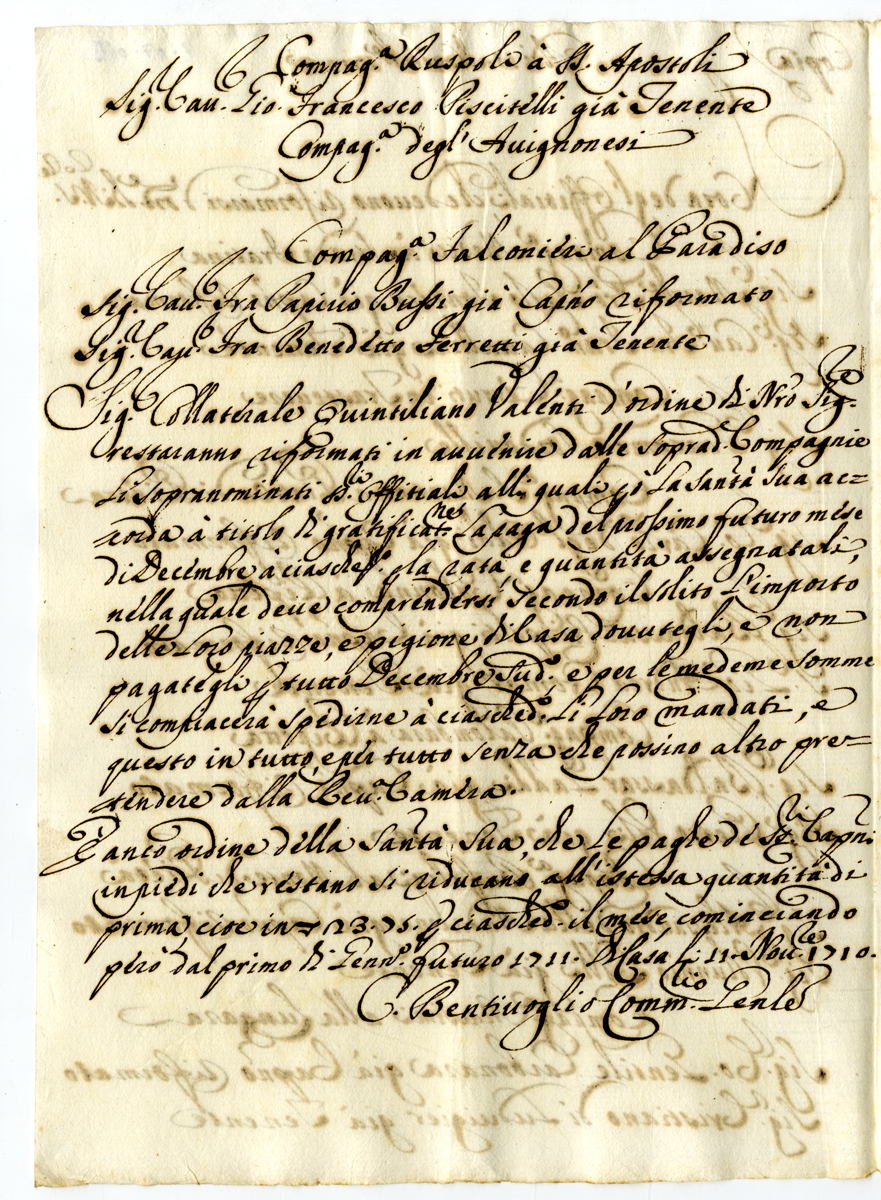 Compag.ª Ruspoli à SS. Apostoli
Sig.r Cav.r Gio. Francesco Piscitelli già Tenente
Compag.ª degl' Avignonesi
Compag.ª Falconieri al Paradiso
Sig.r Cav.r Fra Papirio Bussi già Cap.no riformato
Sig.r Cav.r Fra Benedetto Ferretti già Tenente
Sig.r Collaterale Quintiliano Valenti d'ordine di N.ro Sig.re
restaranno riformati in avvenire dalle soprad.e Compagnie
li sopranominati SS.ri Offitiali alli quali però la Santà Sua ac=
corda à titolo di gratificat.nes la paga del prossimo futuro mese
di Decembre à ciasched.o p la rata e quantità assegnatali,
nella quale deve comprendersi secondo il solito l'importo
delle loro piazze, e pigione di Casa dovutegli, e non
pagategli p tutto Decembre sud.o e per le medeme somme
si compiacerà spedirne à ciasched.o li loro mandati, e
questo in tutto, e per tutto senza che possino altro pre=
tendere dalla Rev.ª Camera.
È anco ordine della Santà Sua, che le paghe de SS.ri Cap.ni
in piedi che restano si riducano all'istessa quantità di
prima, cioe in 23.75. p ciasched.o il mese, cominciando
però dal primo di Genn.o futuro 1711. Di Casa li 11. Nov.re 1710.
C. Bentivoglio Comm.rio Genle